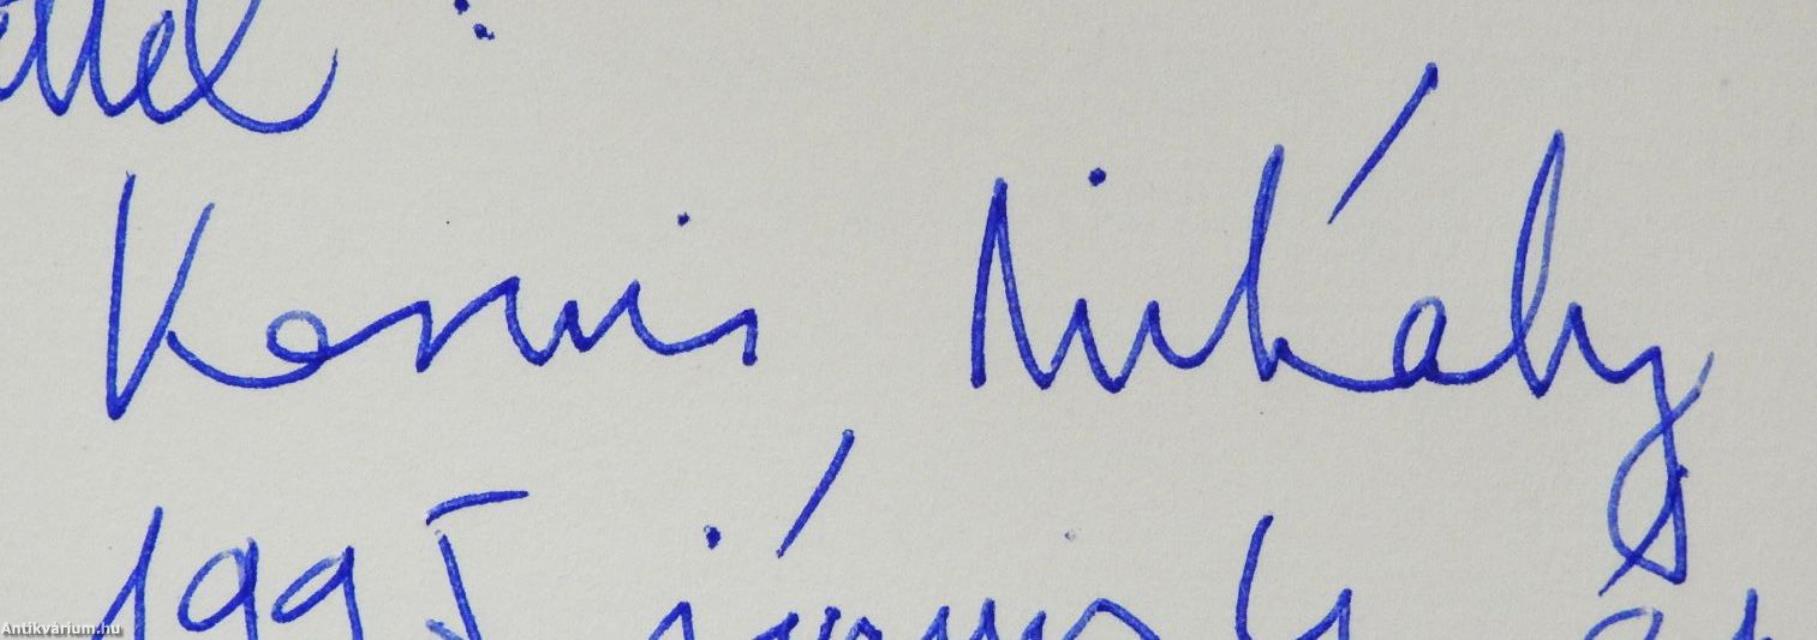 ettel :
Kornis Mihály
1995 június
Antikvárium.hu